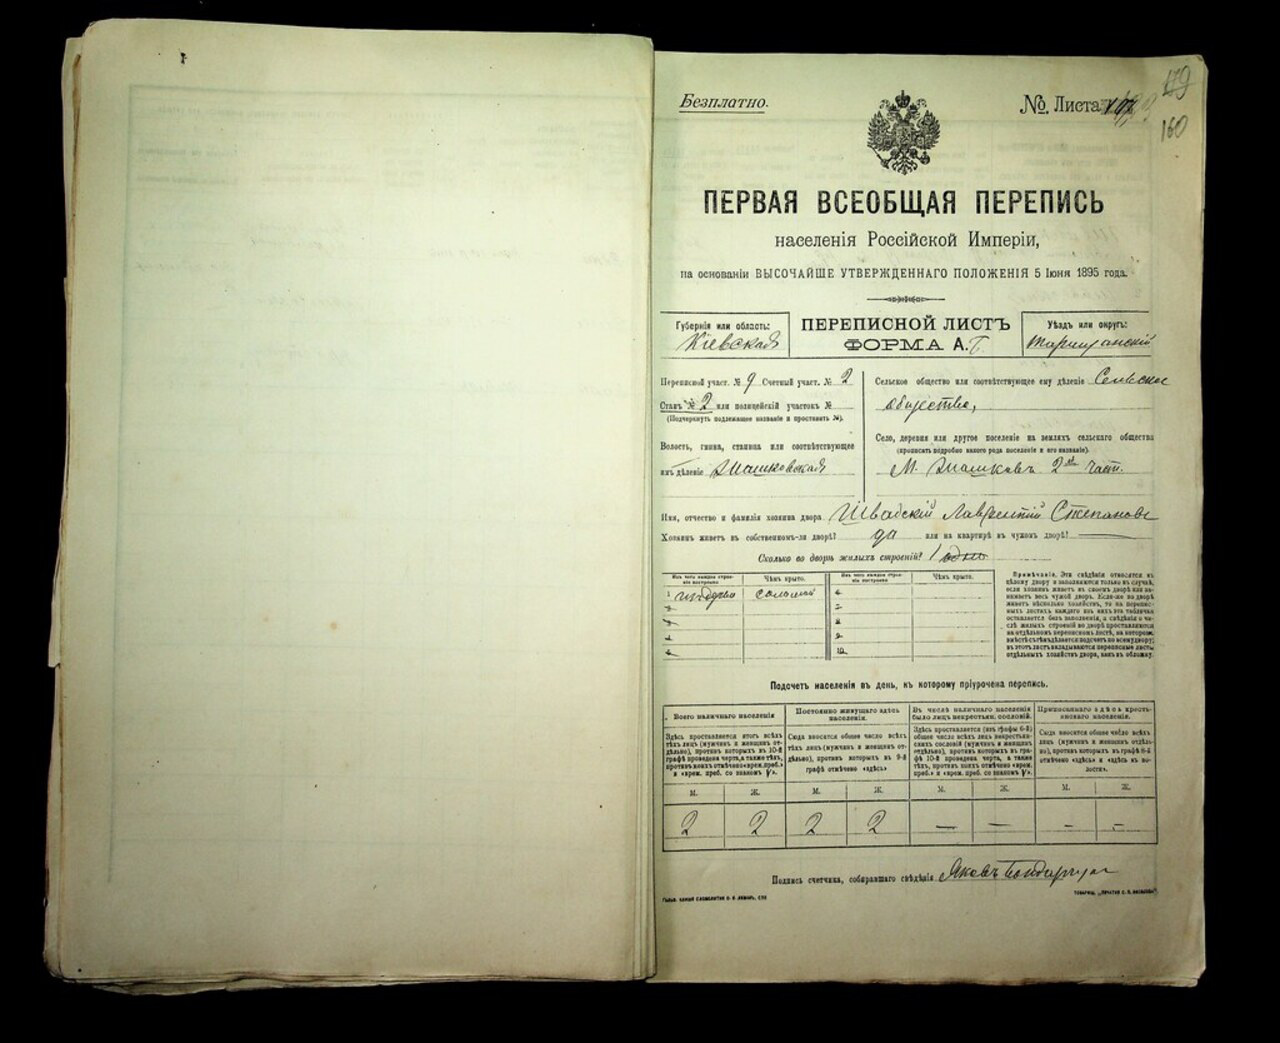 Безплатно.
№ Листа
179
160
ПЕРВАЯ ВСЕОБЩАЯ ПЕРЕПИСЬ
населенія Россійской Имперіи,
на основаніи ВЫСОЧАЙШЕ УТВЕРЖДЕННАГО ПОЛОЖЕНІЯ 5 Іюня 1895 года.
Губернія или область:
Кіевская
ПЕРЕПИСНОЙ ЛИСТЪ
ФОРМА А.
Уѣздъ или округъ:
Таращанскій
Переписной участ. № 9 Счетный участ. № 2
Станъ № 2 или полицейскій участокъ №
(Подчеркнуть подлежащее названіе и проставить №).
Волость, гмина, станица или соотвѣтствующее
имъ дѣленіе
Сельское общество или соотвѣтствующее ему дѣленіе Сельское
общество,
Село, деревня или другое поселеніе на земляхъ сельскаго общества
(прописать подробно какого рода поселеніе и его названіе).
М. 2ая част.
Имя, отчество и фамилія хозяина двора Швадскій Лаврентій Степановъ
Хозяинъ живетъ въ собственномъ-ли дворѣ? да или на квартирѣ въ чужомъ дворѣ?
Сколько во дворѣ жилыхъ строеній? 1 одно
Изъ чего каждое строеніе построено
Чѣмъ крыто.
Изъ чего каждое строеніе построено
Чѣмъ крыто.
1 изъ дерева соломой 6
2 7
3 8
4 9
5 10
Примѣчаніе. Эти свѣдѣнія относятся къ
цѣлому двору и заполняются только въ случаѣ,
если хозяинъ живетъ въ своемъ дворѣ или нанимаетъ весь чужой дворъ. Если-же во дворѣ
живетъ нѣсколько хозяйствъ, то на переписныхъ листахъ каждаго изъ нихъ эта табличка
оставляется безъ заполненія, а свѣдѣнія о числѣ жилыхъ строеній во дворѣ проставляются
на отдѣльномъ переписномъ листѣ, на которомъ
вмѣстѣ съ тѣмъ дѣлается подсчетъ по всему двору;
въ этотъ листъ вкладываются переписные листы
отдѣльныхъ хозяйствъ двора, какъ въ обложку.
Подсчетъ населенія въ день, къ которому пріурочена перепись.
Всего наличнаго населенія
Постоянно живущаго здѣсь
населенія.
Въ числѣ наличнаго населенія
было лицъ некрестьян. сословій.
Приписаннаго здѣсь крестьянскаго населенія.
Здѣсь проставляется итогъ всѣхъ
тѣхъ лицъ (мужчинъ и женщинъ отдѣльно), противъ которыхъ въ 10-й
графѣ проведена черта, а также тѣхъ,
противъ коихъ отмѣчено «врем. преб.»
и «врем. преб. со знакомъ V».
Сюда вносится общее число всѣхъ
тѣхъ лицъ (мужчинъ и женщинъ отдѣльно), противъ которыхъ въ 9-й
графѣ отмѣчено «здѣсь»
Здѣсь проставляется (изъ графы 6-й)
общее число всѣхъ лицъ некрестьянскихъ сословій (мужчинъ и женщинъ
отдѣльно), противъ которыхъ въ графѣ 10-й проведена черта, а также
тѣхъ, противъ коихъ отмѣчено «врем.
преб.» и «врем. преб. со знакомъ V».
Сюда вносится общее число всѣхъ
лицъ (мужчинъ и женщинъ отдѣльно), противъ которыхъ въ графѣ 8-й
отмѣчено «здѣсь» и «здѣсь въ волости».
М. Ж. М. Ж. М. Ж. М. Ж.
2 2 2 2 — — — —
Подпись счетчика, собиравшаго свѣдѣнія Яковъ